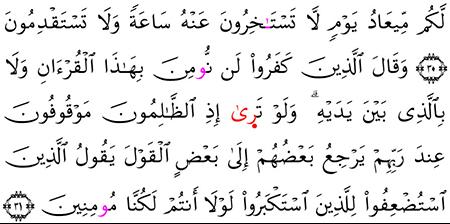 لَّكُم مِّيعَادُ يَوْمٍ لَّا تَسْتَـٰخِرُونَ عَنْهُ سَاعَةً وَلَا تَسْتَقْدِمُونَ
﴿٣٠﴾ وَقَالَ ٱلَّذِينَ كَفَرُوا۟ لَن نُّومِنَ بِهَـٰذَا ٱلْقُرْءَانِ وَلَا
بِٱلَّذِى بَيْنَ يَدَيْهِ ۗ وَلَوْ تَرٜىٰ إِذِ ٱلظَّـٰلِمُونَ مَوْقُوفُونَ
عِندَ رَبِّهِمْ يَرْجِعُ بَعْضُهُمْ إِلَىٰ بَعْضٍ ٱلْقَوْلَ يَقُولُ ٱلَّذِينَ
ٱسْتُضْعِفُوا۟ لِلَّذِينَ ٱسْتَكْبَرُوا۟ لَوْلَا أَنتُمْ لَكُنَّا مُومِنِينَ ﴿٣١﴾